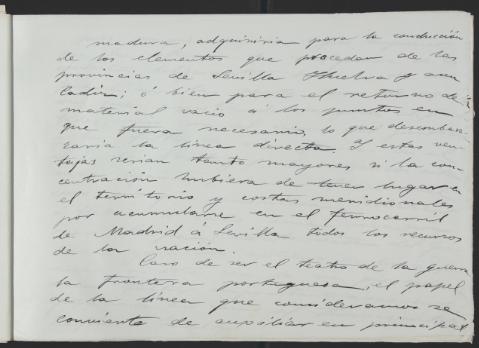 madura, adquiriria para la conducción
de los elementos que procedan de las
provincias de Sevilla Huelva y aun
Cadiz; ó bien para el retorno de
material vacio á los puntos en
que fuera necesario, lo que desemba-
zaria la linea directa. Y estas ven-
tajas serian tanto mayores si la con-
centración hubiera de tener lugar en
el territorio y costas meridionales
por acumularse en el ferrocarril
de Madrid á Sevilla todos los recursos
de la nación.
Caso de ser el teatro de la guerra
la frontera portuguesa, el papel
de la linea que consideramos se
convierte de auxiliar en principal